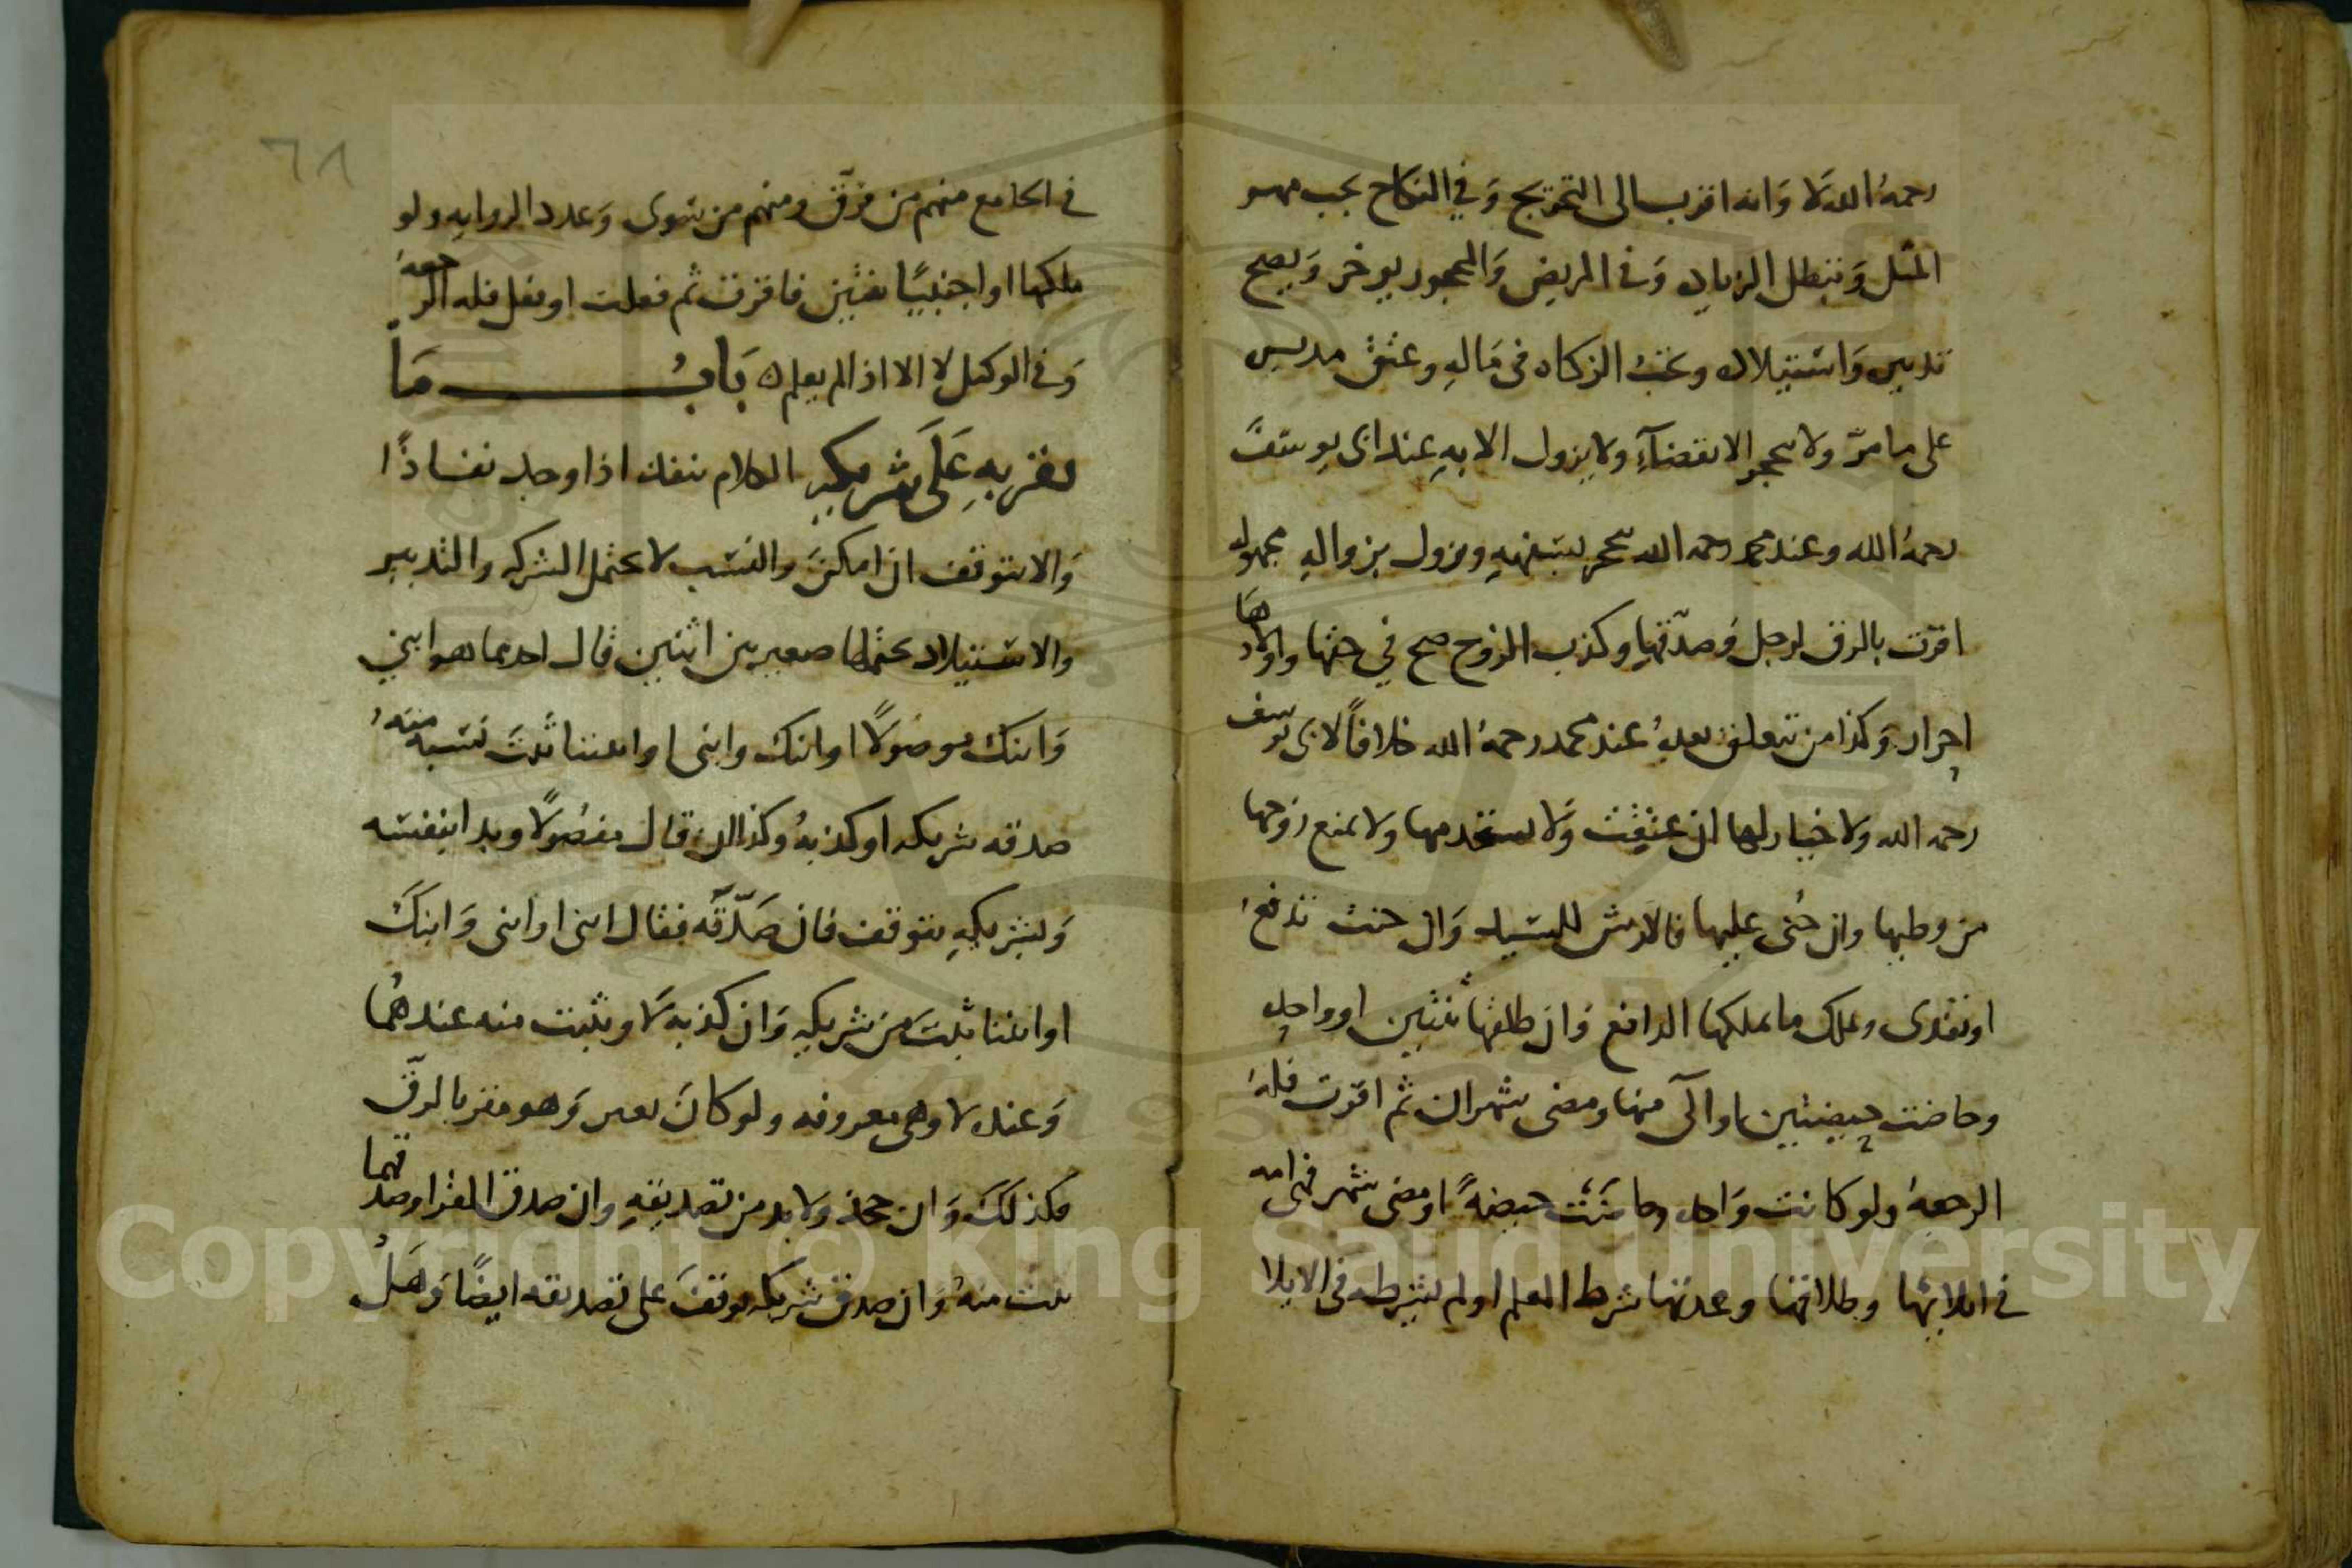 رحمهُ الله لا وَانه اقرب الى التخريج وَفي النكاح يجب مهر
المثل وَتبطل الزياده وَفى المريض وَالمحجور يوخر وَيصح
تدبيره وَاستيلاده وتجبُ الزكاه فى مَالهِ وعتق مدبره
على ما مرّ ولا يحجر الا بقضآءِ ولا يزول الا بهِ عند ابى يوسفَ
رحمهُ الله وعند محمد رحمه الله يحجر بسفههِ ويزول بزوالهِ مجهوله
اقرّت بالرق لرجل وَصدّقها وكذب الزوج صح في حقها واولادهَا
احرار وَكذا من تعلق بعدهُ عند محمد رحمهُ الله خلافاً لابى يوسف
رحمه الله ولا خيار لها ان عتِقت وَلا يستخدمها ولا يمنع زوجها
من وطيها وان جُنى عليها فالارش للسيد وَان جنت تدفعُ
او تفدى ويملك ما يملكها الدافع وَان طلقها ثنتين او واحده
وحاضت حيضتين او آلى منها ومضى شهران ثم اقرّت فلهُ
الرجعهُ ولو كانت وَاحده وحاضَت حيضهً او مضى شهر فهى امه
فى ايلائها وطلاقها وعدتها شرط العلم او لم يشرطه فى الايلا
٦٨
فى الجامع منهم من فرّق ومنهم من سَوى وَعدد الروايه ولو
ملكها او اجنبيًا ثنتين فاقرت ثم فعلت او فعل فله الرجعهُ
وَفى الوكيل لا الا اذا لم يعلم ه بَابُ مَا
يقر بهِ عَلَى شريكهِ الكلام ينفذ اذا وجد نفاذًا
وَالا يتوقف ان امكنَ والنسب لا يحتمل الشركه والتدبير
والاستيلاد يحتملها صغير بين اثنين قال احدهما هو ابني
وَابنك موصُولًا او ابنك وابنى او ابننا ثبتَ نسبه منهُ
صدقه شريكه او كذبهُ وكذا ان قال مفصُولًا وبدا بنفسه
وَبشريكهِ يتوقف فان صَدّقه فقال ابنى او ابنى وَابنكَ
او ابننا ثبتَ من شريكهِ وَان كذبهُ لا ويثبت منه عندهُما
وَعنده لا وهى معروفه ولو كانَ يعبر وَهو مقر بالرقّ
فكذلكَ وَان جحد ولابد من تصديقهِ وان صدق المقر او صدقهما
ثبت منهُ وَان صدق شريكه توقفَ على تصديقه ايضًا وَهَلْ